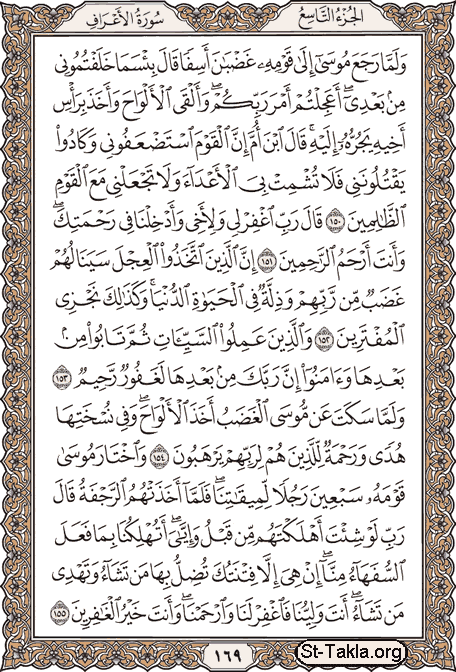 الجزء التاسع
سورة الأعراف
وَلَمَّا رَجَعَ مُوسَىٰٓ إِلَىٰ قَوْمِهِۦ غَضْبَٰنَ أَسِفًا قَالَ بِئْسَمَا خَلَفْتُمُونِى
مِنۢ بَعْدِىٓ ۖ أَعَجِلْتُمْ أَمْرَ رَبِّكُمْ ۖ وَأَلْقَى ٱلْأَلْوَاحَ وَأَخَذَ بِرَأْسِ
أَخِيهِ يَجُرُّهُۥٓ إِلَيْهِ ۚ قَالَ ٱبْنَ أُمَّ إِنَّ ٱلْقَوْمَ ٱسْتَضْعَفُونِى وَكَادُوا۟
يَقْتُلُونَنِى فَلَا تُشْمِتْ بِىَ ٱلْأَعْدَآءَ وَلَا تَجْعَلْنِى مَعَ ٱلْقَوْمِ
ٱلظَّٰلِمِينَ ١٥٠ قَالَ رَبِّ ٱغْفِرْ لِى وَلِأَخِى وَأَدْخِلْنَا فِى رَحْمَتِكَ ۖ
وَأَنتَ أَرْحَمُ ٱلرَّٰحِمِينَ ١٥١ إِنَّ ٱلَّذِينَ ٱتَّخَذُوا۟ ٱلْعِجْلَ سَيَنَالُهُمْ
غَضَبٌ مِّن رَّبِّهِمْ وَذِلَّةٌ فِى ٱلْحَيَوٰةِ ٱلدُّنْيَا ۚ وَكَذَٰلِكَ نَجْزِى
ٱلْمُفْتَرِينَ ١٥٢ وَٱلَّذِينَ عَمِلُوا۟ ٱلسَّيِّـَٔاتِ ثُمَّ تَابُوا۟ مِنۢ
بَعْدِهَا وَءَامَنُوٓا۟ إِنَّ رَبَّكَ مِنۢ بَعْدِهَا لَغَفُورٌ رَّحِيمٌ ١٥٣
وَلَمَّا سَكَتَ عَن مُّوسَى ٱلْغَضَبُ أَخَذَ ٱلْأَلْوَاحَ ۖ وَفِى نُسْخَتِهَا
هُدًى وَرَحْمَةٌ لِّلَّذِينَ هُمْ لِرَبِّهِمْ يَرْهَبُونَ ١٥٤ وَٱخْتَارَ مُوسَىٰ
قَوْمَهُۥ سَبْعِينَ رَجُلًا لِّمِيقَٰتِنَا ۖ فَلَمَّآ أَخَذَتْهُمُ ٱلرَّجْفَةُ قَالَ
رَبِّ لَوْ شِئْتَ أَهْلَكْتَهُم مِّن قَبْلُ وَإِيَّٰىَ ۖ أَتُهْلِكُنَا بِمَا فَعَلَ
ٱلسُّفَهَآءُ مِنَّآ ۖ إِنْ هِىَ إِلَّا فِتْنَتُكَ تُضِلُّ بِهَا مَن تَشَآءُ وَتَهْدِى
مَن تَشَآءُ ۖ أَنتَ وَلِيُّنَا فَٱغْفِرْ لَنَا وَٱرْحَمْنَا ۖ وَأَنتَ خَيْرُ ٱلْغَٰفِرِينَ ١٥٥
١٦٩
St-Takla.org